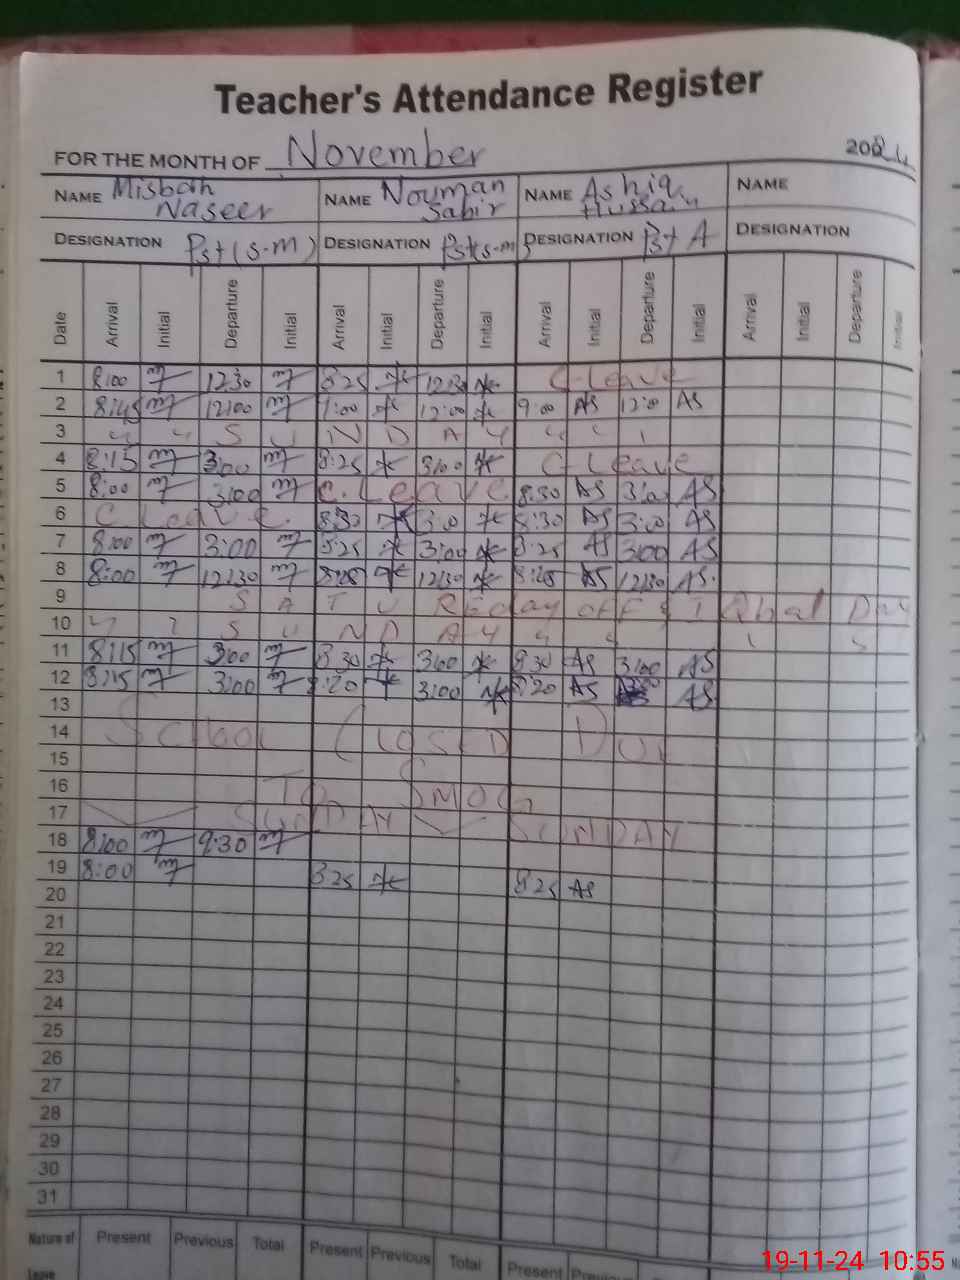 Teacher's Attendance Register
FOR THE MONTH OF November 2024
NAME Misbah Naseer NAME Nouman Sabir NAME Ashiq Hussain NAME
DESIGNATION Pst (S-M) DESIGNATION Pst (S-M) DESIGNATION Pst A DESIGNATION
Date Arrival Initial Departure Initial Arrival Initial Departure Initial Arrival Initial Departure Initial Arrival Initial Departure Initial
1 8:00 12:30 8:25 12:30 C-Leave
2 8:45 12:00 12:00 9:00 AS 12:00 AS
3 SUNDAY
4 8:15 3:00 8:25 3:00 C-Leave
5 8:00 3:00 C. Leave 8:30 AS 3:00 AS
6 C Leave. 8:30 3:00 8:30 AS 3:00 AS
7 8:00 3:00 8:25 3:00 8:25 AS 3:00 AS
8 8:00 12:30 12:30 AS 12:30 AS.
9 SATUREday OFF & IQbal Day
10 SUNDAY
11 8:15 3:00 8:30 3:00 8:30 AS 3:00 AS
12 8:15 3:00 8:20 3:00 8:20 AS AS
13
14 School CLOSED DUE
15
16 TO SMOG
17 SUNDAY SUNDAY
18 8:00 9:30
19 8:00 8:25 8:25 AS
20
21
22
23
24
25
26
27
28
29
30
31
Nature of Leave Present Previous Total Present Previous Total Present Previous
19-11-24 10:55